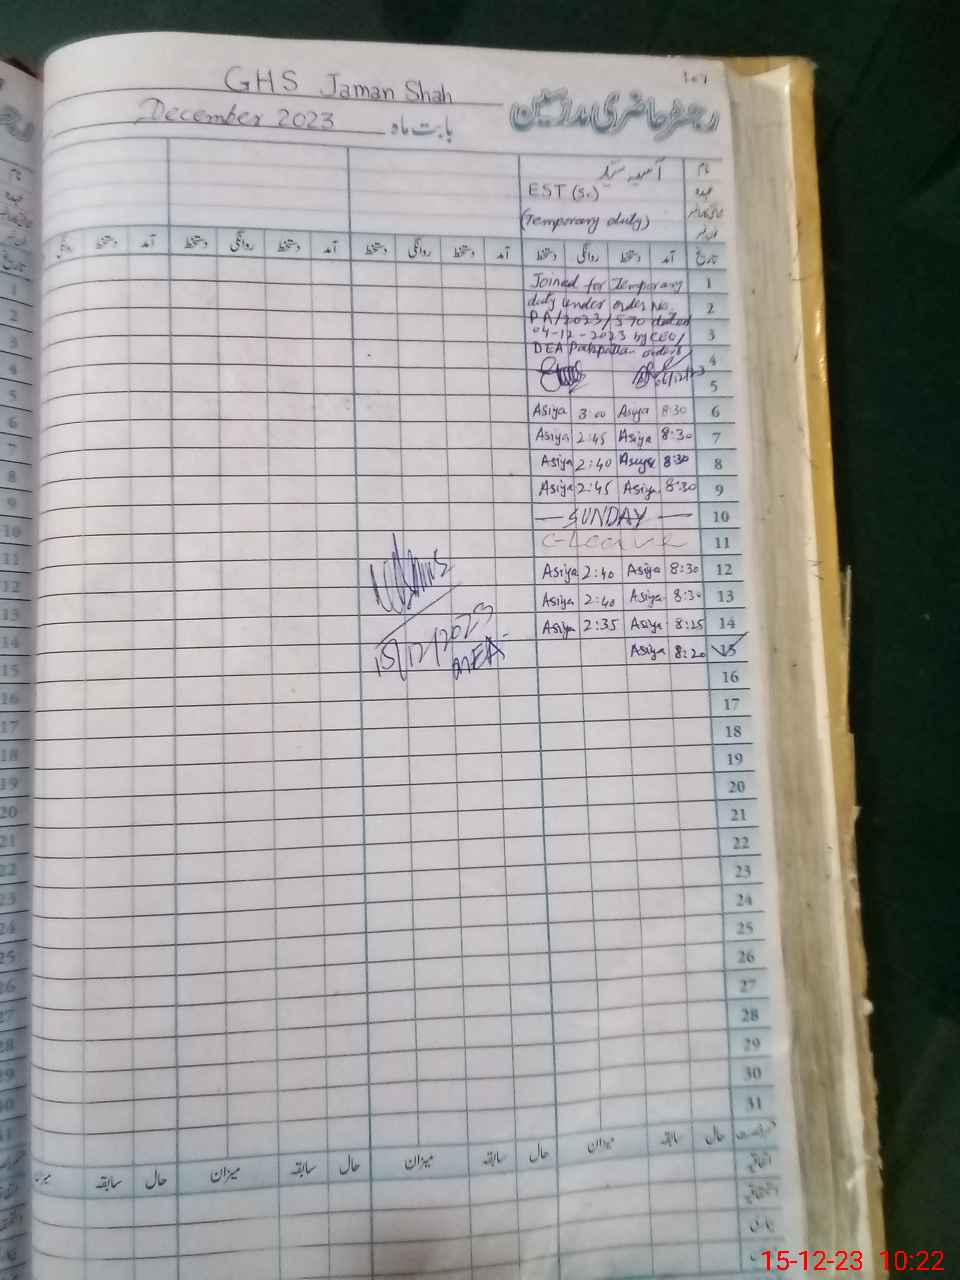 107
GHS Jaman Shah
رجسٹر حاضری مدرسین
December 2023 بابت ماہ
نام آسیہ سید
عہدہ EST (Sc.)
(Temporary duty)
تاریخ آمد دستخط روانگی دستخط آمد دستخط روانگی دستخط آمد دستخط روانگی دستخط آمد دستخط روانگی
1 Joined for Temporary
2 duty under order No.
PA/2023/570 dated
3 04-12-2023 by CEO/
DEA Pakpattan orders
4
5 06/12/23
6 Asiya 3:00 Asiya 8:30
7 Asiya 2:45 Asiya 8:30
8 Asiya 2:40 Asiya 8:30
9 Asiya 2:45 Asiya 8:30
10 — SUNDAY —
11 C-Leave
12 Asiya 2:40 Asiya 8:30
13 Asiya 2:40 Asiya 8:30
14 Asiya 2:35 Asiya 8:25
15 Asiya 8:20
15/12/2023
MEA
16
17
18
19
20
21
22
23
24
25
26
27
28
29
30
31
حال سابقہ میزان حال سابقہ میزان حال سابقہ میزان حال سابقہ
اتفاقیہ
استحقاقیہ
بیماری
15-12-23 10:22